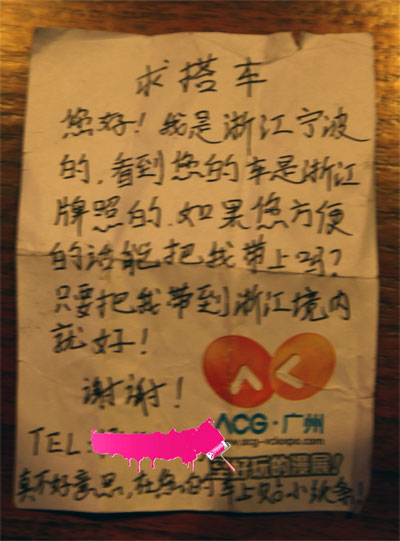 求搭车
您好！我是浙江宁波
的，看到您的车是浙江
牌照的，如果您方便
的话能把我带上吗？
只要把我带到浙江境内
就好！
谢谢！
ACG·广州
TEL:
真不好意思，在您的车上贴小纸条！